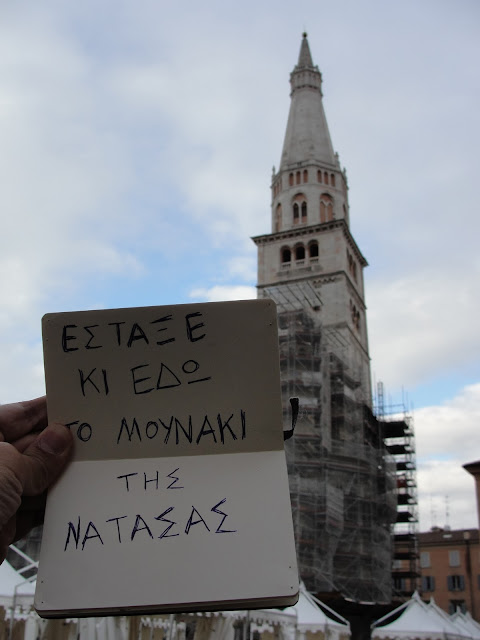 ΕΣΤΑΞΕ
ΚΙ ΕΔΩ
ΤΟ ΜΟΥΝΑΚΙ
ΤΗΣ
ΝΑΤΑΣΑΣ